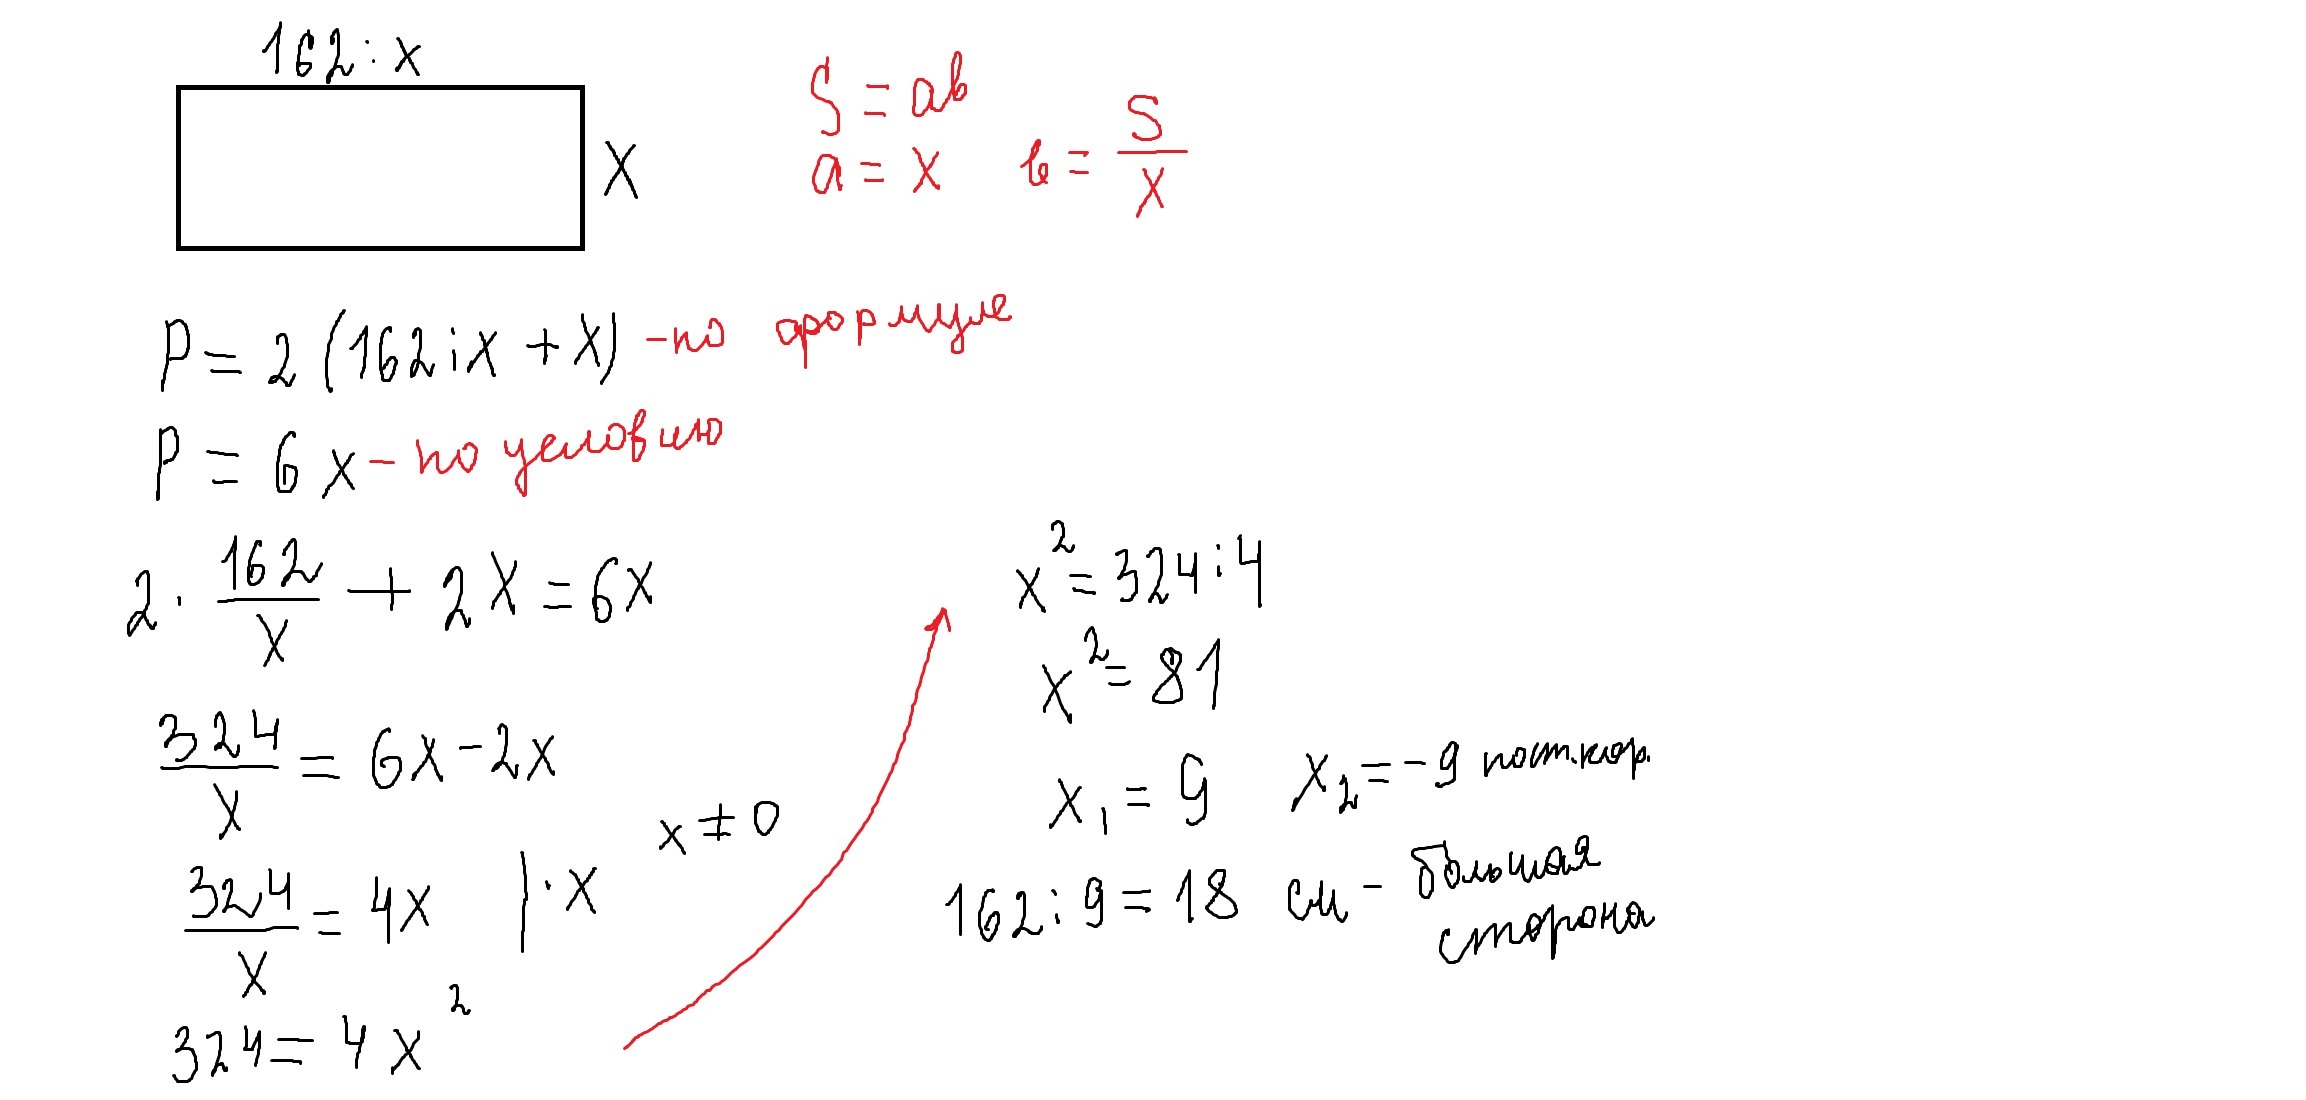 162 : x
x
S = ab
a = x   b = S/x
P = 2 (162 : x + x) - по формуле
P = 6x - по условию
2 · 162/x + 2x = 6x
324/x = 6x - 2x
324/x = 4x | · x   x ≠ 0
324 = 4x²
x² = 324 : 4
x² = 81
x₁ = 9   x₂ = -9 пост.кор.
162 : 9 = 18 см - большая
сторона